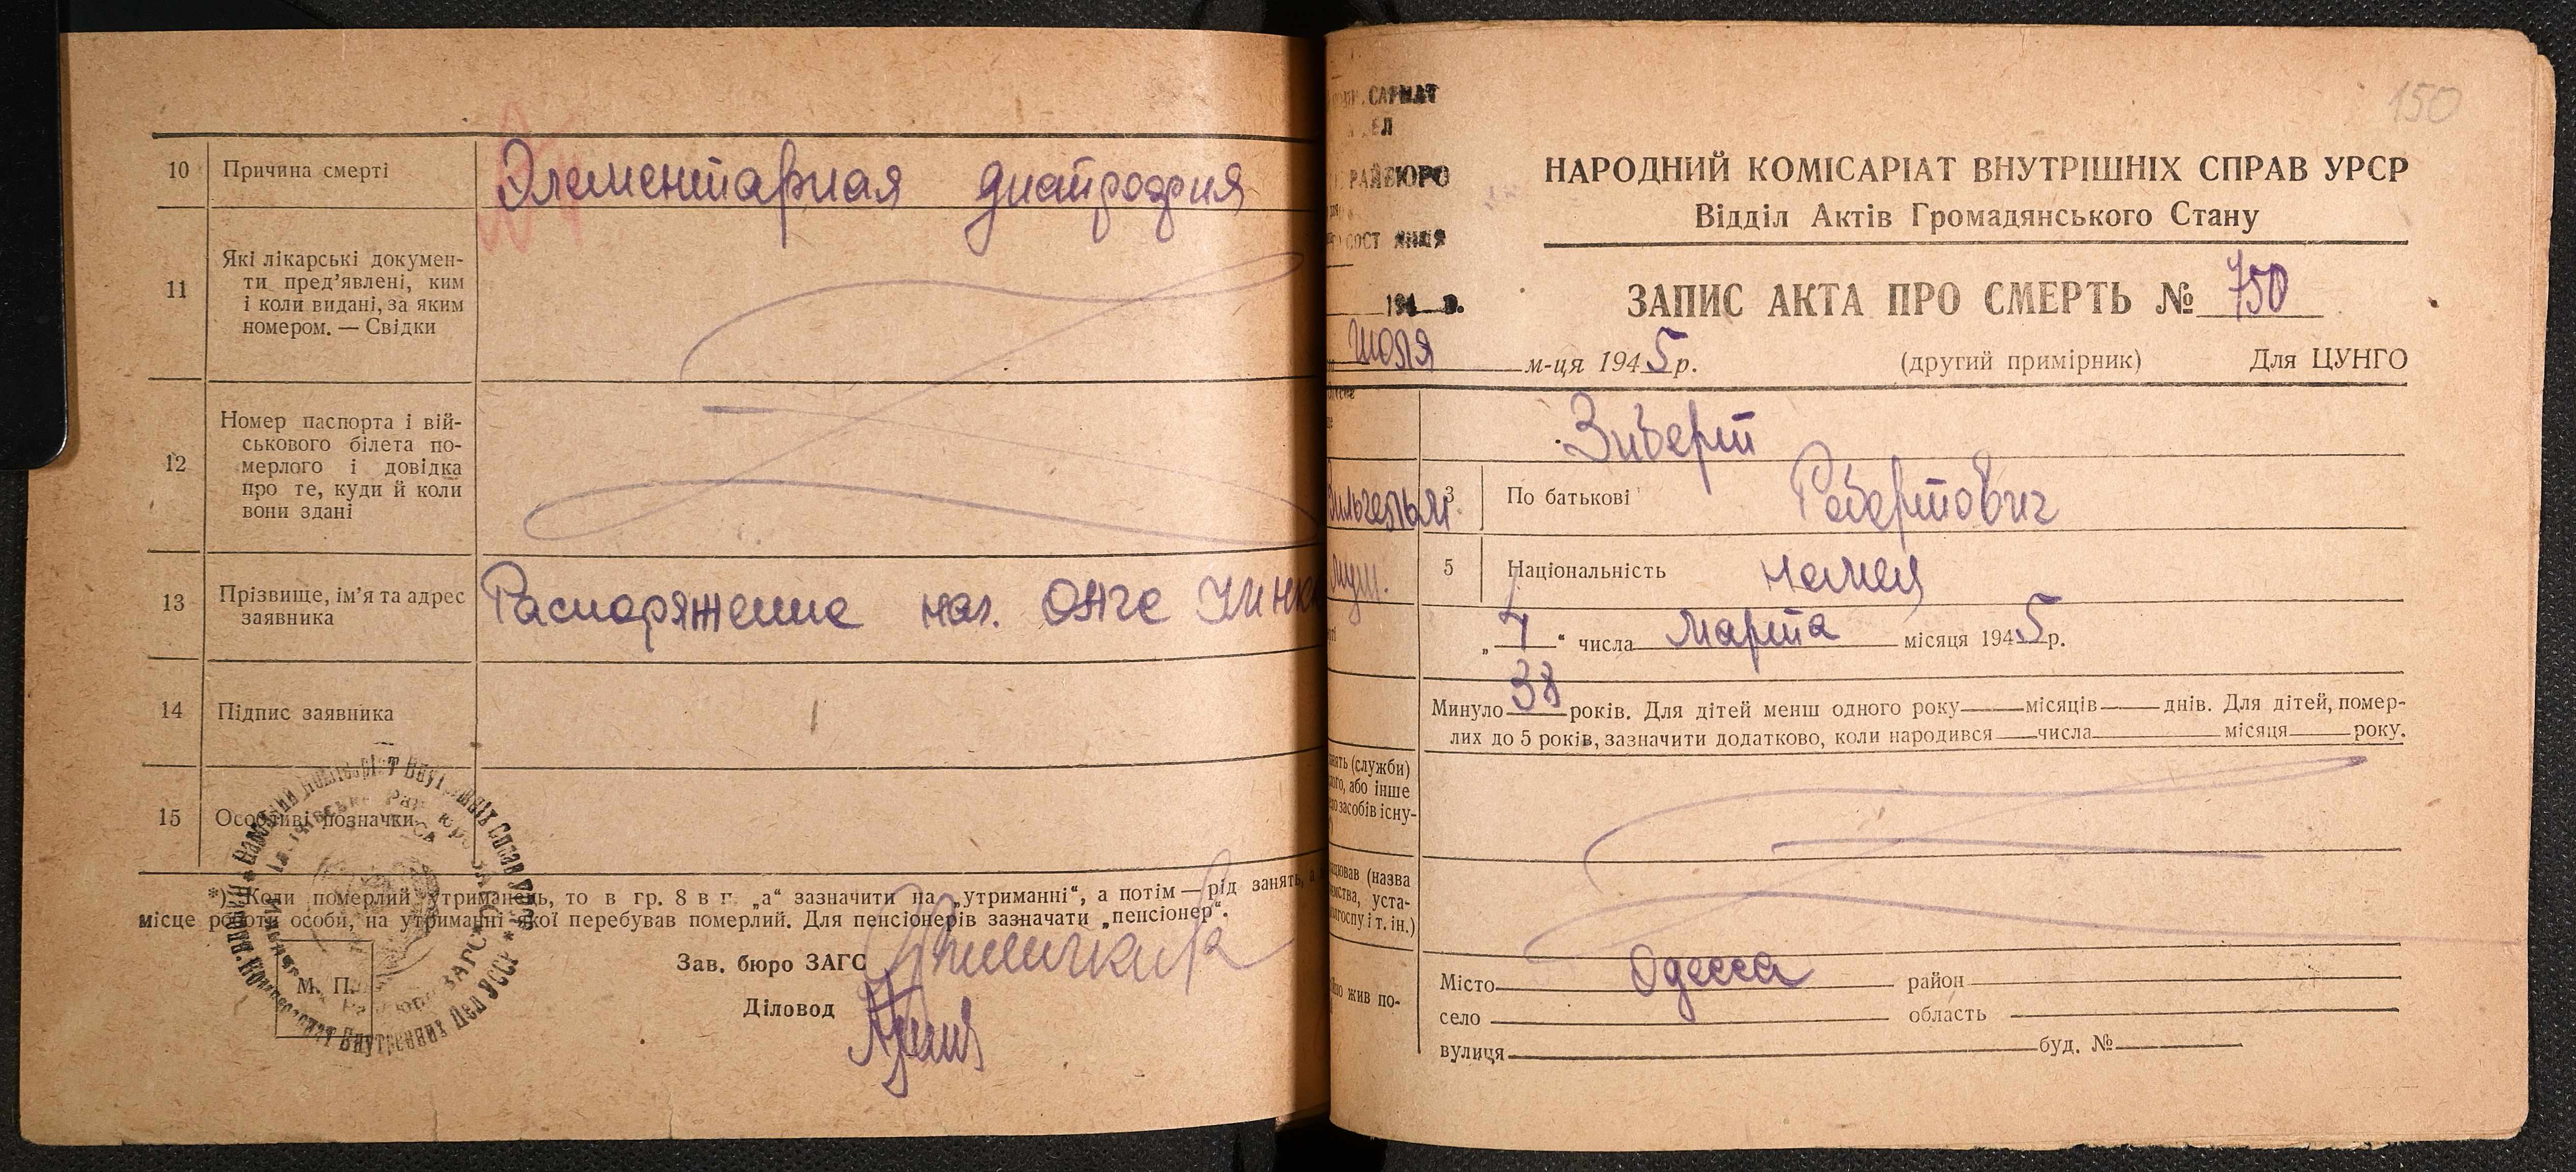 10 Причина смерті Элементарная дистрофия
11 Які лікарські докумен-
ти пред’явлені, ким
і коли видані, за яким
номером. — Свідки
12 Номер паспорта і вій-
ськового білета по-
мерлого і довідка
про те, куди й коли
вони здані
13 Прізвище, ім’я та адрес
заявника Распоряжение нач.
14 Підпис заявника
15 Особливі позначки
*) Коли померлий утриманець, то в гр. 8 в г. „а“ зазначити на „утриманні“, а потім — рід занять, а
місце роботи особи, на утриманні якої перебував померлий. Для пенсіонерів зазначати „пенсіонер“.
Зав. бюро ЗАГС
Діловод
М. П.
150
РАЙБЮРО
194 р.
НАРОДНИЙ КОМІСАРІАТ ВНУТРІШНІХ СПРАВ УРСР
Відділ Актів Громадянського Стану
ЗАПИС АКТА ПРО СМЕРТЬ № 750
июля м-ця 1945 р. (другий примірник) Для ЦУНГО
Зиберт
Вильгельм. 3 По батькові Робертович
5 Національність немец
„7“ числа Марта місяця 1945 р.
Минуло 38 років. Для дітей менш одного року місяців днів. Для дітей, помер-
лих до 5 років, зазначити додатково, коли народився числа місяця року.
нять (служби)
ого, або інше
о засобів існу-
ацював (назва
ємства, уста-
лгоспу і т. ін.)
но жив по-
Місто Одесса район
село область
вулиця буд. №